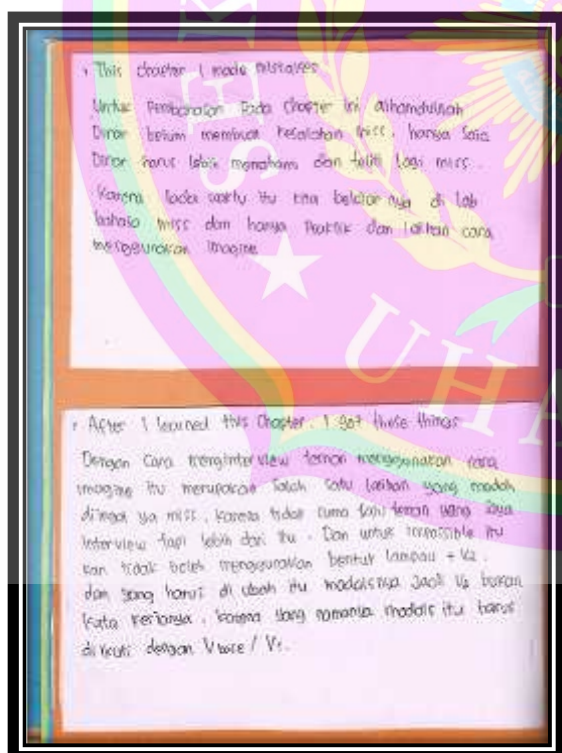 This chapter I made mistakes
Untuk Pembahasan Pada Chapter ini alhamdulillah
Diran belum membuat kesalahan miss, hanya saja
Diran harus lebih memahami dan teliti lagi miss.
Karena pada waktu itu kita belajar nya di Lab
bahasa miss dan hanya Praktik dan latihan cara
menggunakan imagine
After I learned this Chapter. I got these things
Dengan Cara menginterview teman menggunakan cara
imagine itu merupakan Salah satu latihan yang mudah
diingat ya miss, karena tidak cuma satu teman yang saya
interview tapi lebih dari itu. Dan untuk impossible itu
kan tidak boleh menggunakan bentuk lampau + V2.
dan yang harus di ubah itu modalsnya Jadi V2 bukan
kata kerjanya, karena yang namanya modals itu harus
di ikuti dengan Vbase / V1.
UHA